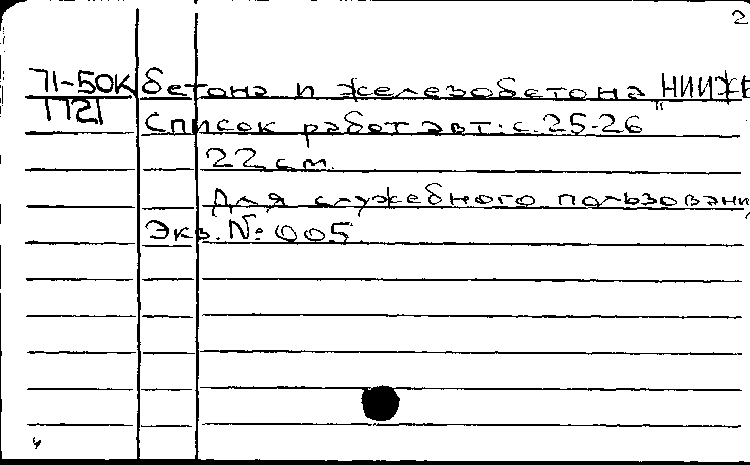 2
71-50К бетона и железобетона "НИИЖБ
1721 Список работ авт: с.25-26
22 см.
Для служебного пользовани
Экз. №: 005